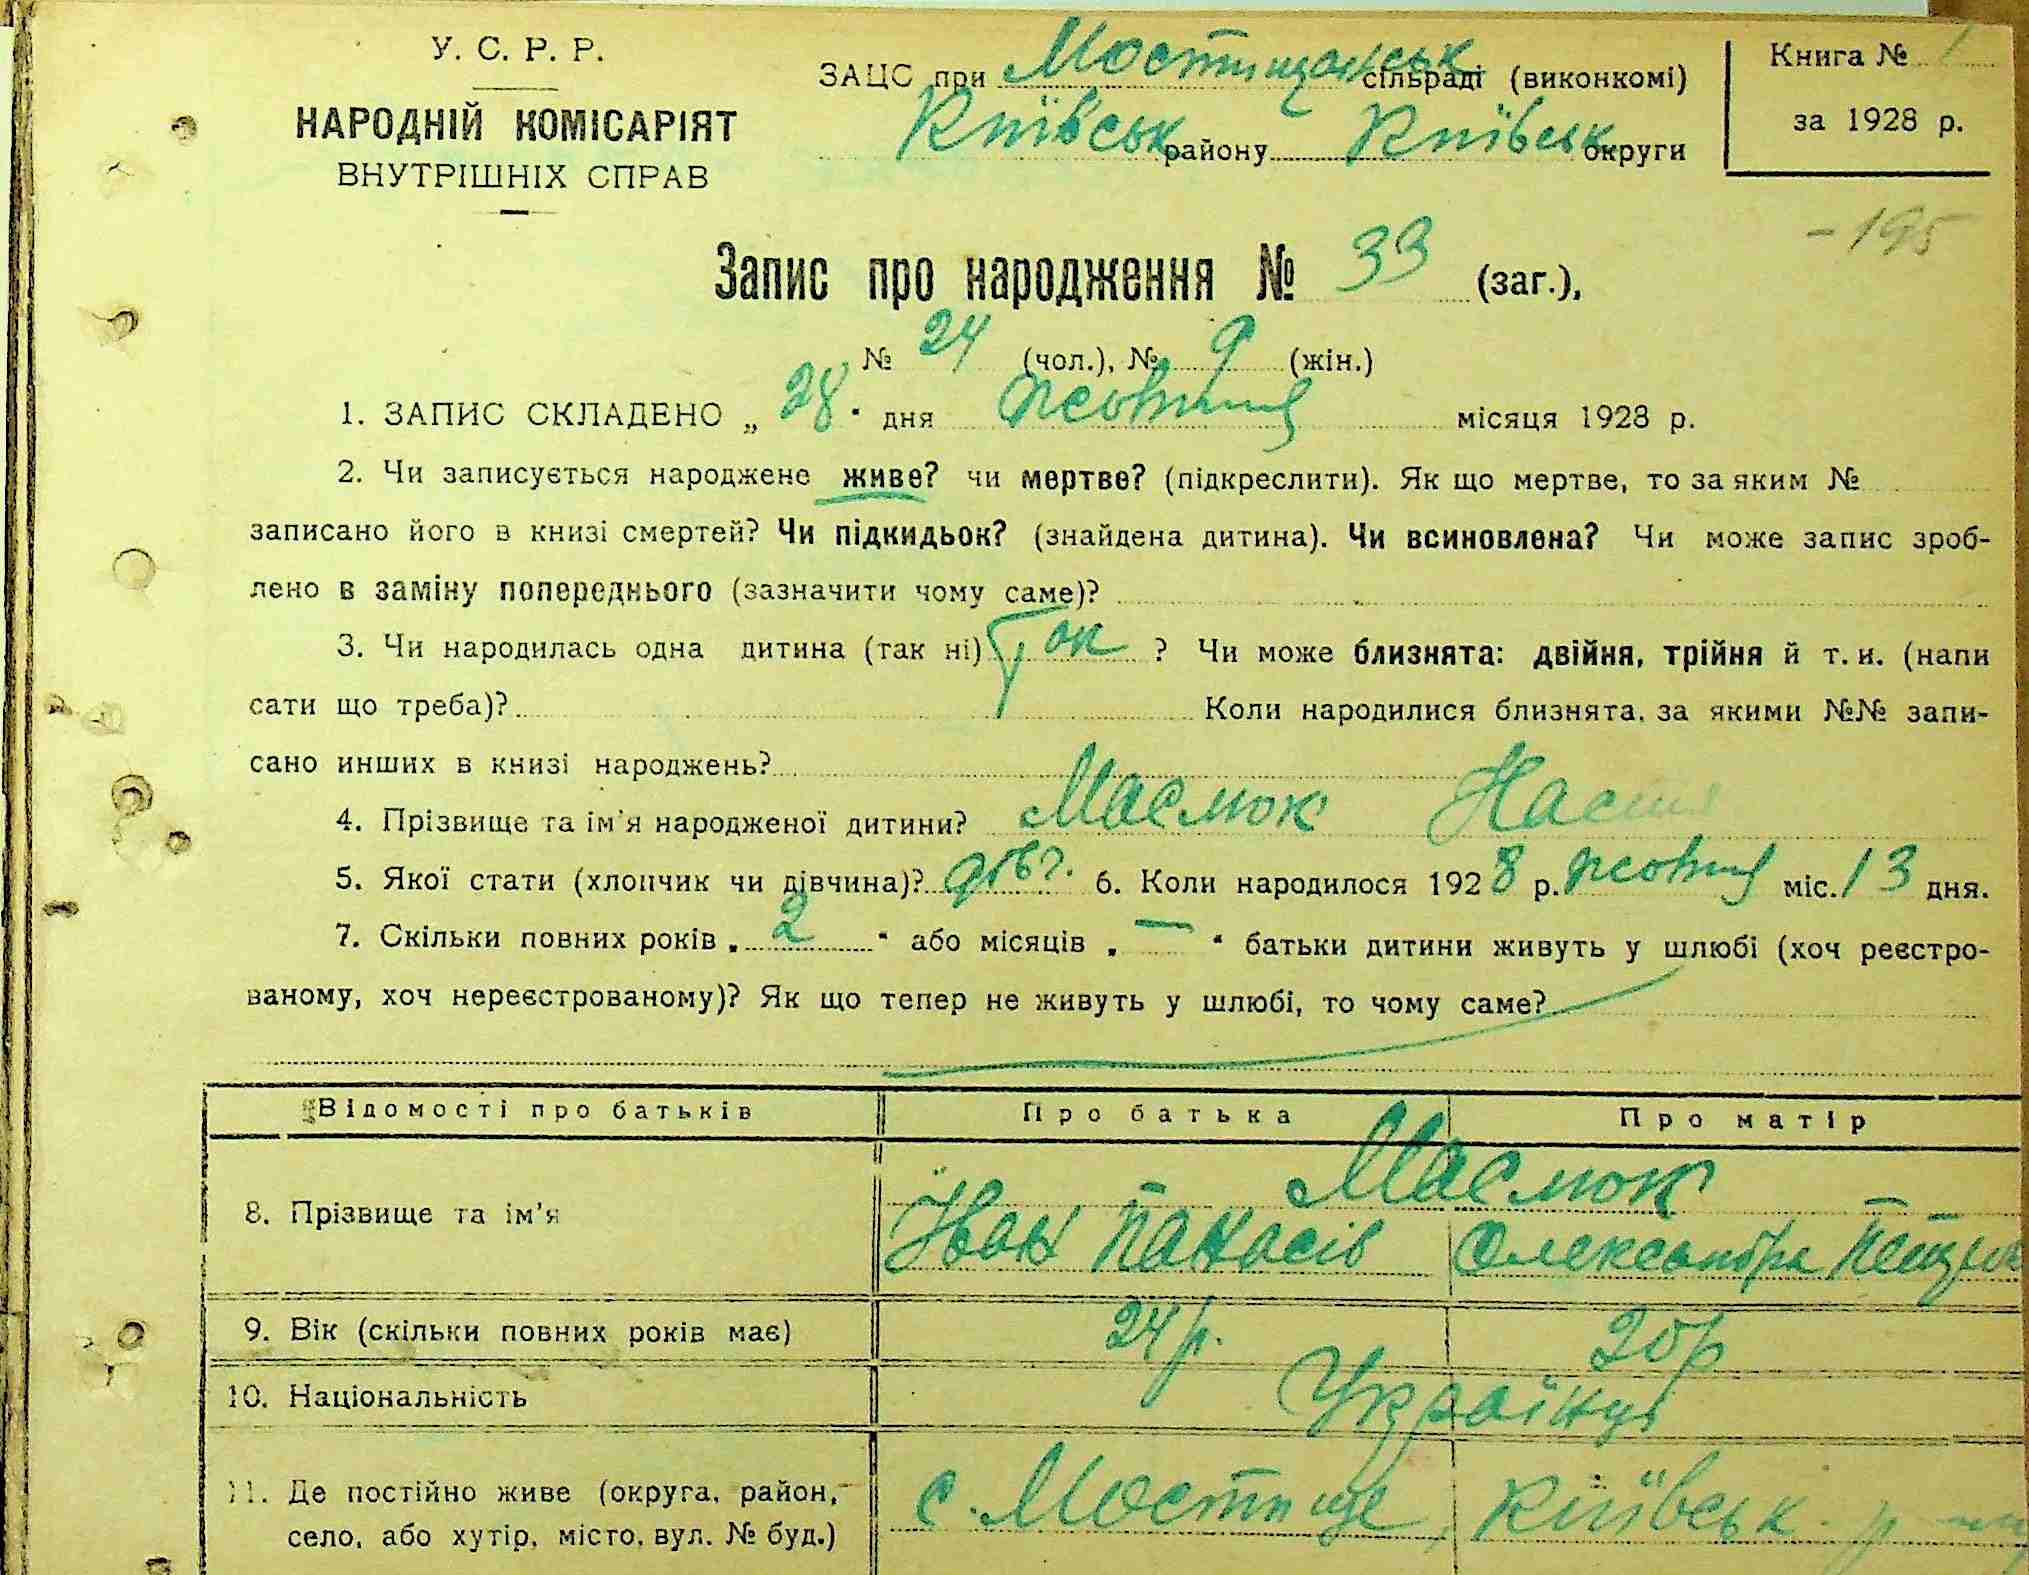 У. С. Р. Р.
НАРОДНІЙ КОМІСАРІЯТ
ВНУТРІШНІХ СПРАВ
ЗАЦС при Мостищанськ сільраді (виконкомі)
Київськ району Київськ округи
Книга № 1
за 1928 р.
- 195
Запис про народження № 33 (заг.),
№ 24 (чол.), № 9 (жін.)
1. ЗАПИС СКЛАДЕНО „ 28 " дня жовтня місяця 1928 р.
2. Чи записується народжене живе? чи мертве? (підкреслити). Як що мертве, то за яким №
записано його в книзі смертей? Чи підкидьок? (знайдена дитина). Чи всиновлена? Чи може запис зроб-
лено в заміну попереднього (зазначити чому саме)?
3. Чи народилась одна дитина (так ні) Так ? Чи може близнята: двійня, трійня й т. и. (напи
сати що треба)? Коли народилися близнята, за якими №№ запи-
сано инших в книзі народжень?
4. Прізвище та ім'я народженої дитини? Маслюк Настя
5. Якої стати (хлопчик чи дівчина)? дівч. 6. Коли народилося 1928 р. жовтня міс. 13 дня.
7. Скільки повних років „ 2 " або місяців „ — " батьки дитини живуть у шлюбі (хоч реєстро-
ваному, хоч нереєстрованому)? Як що тепер не живуть у шлюбі, то чому саме?
Відомості про батьків Про батька Про матір
Маслюк
8. Прізвище та ім'я Іван Панасів Олександра Петров
9. Вік (скільки повних років має) 24 р. 20 р
10. Національність Українці
11. Де постійно живе (округа, район, с. Мостище, Київськ. р-ну
село, або хутір, місто, вул. № буд.)